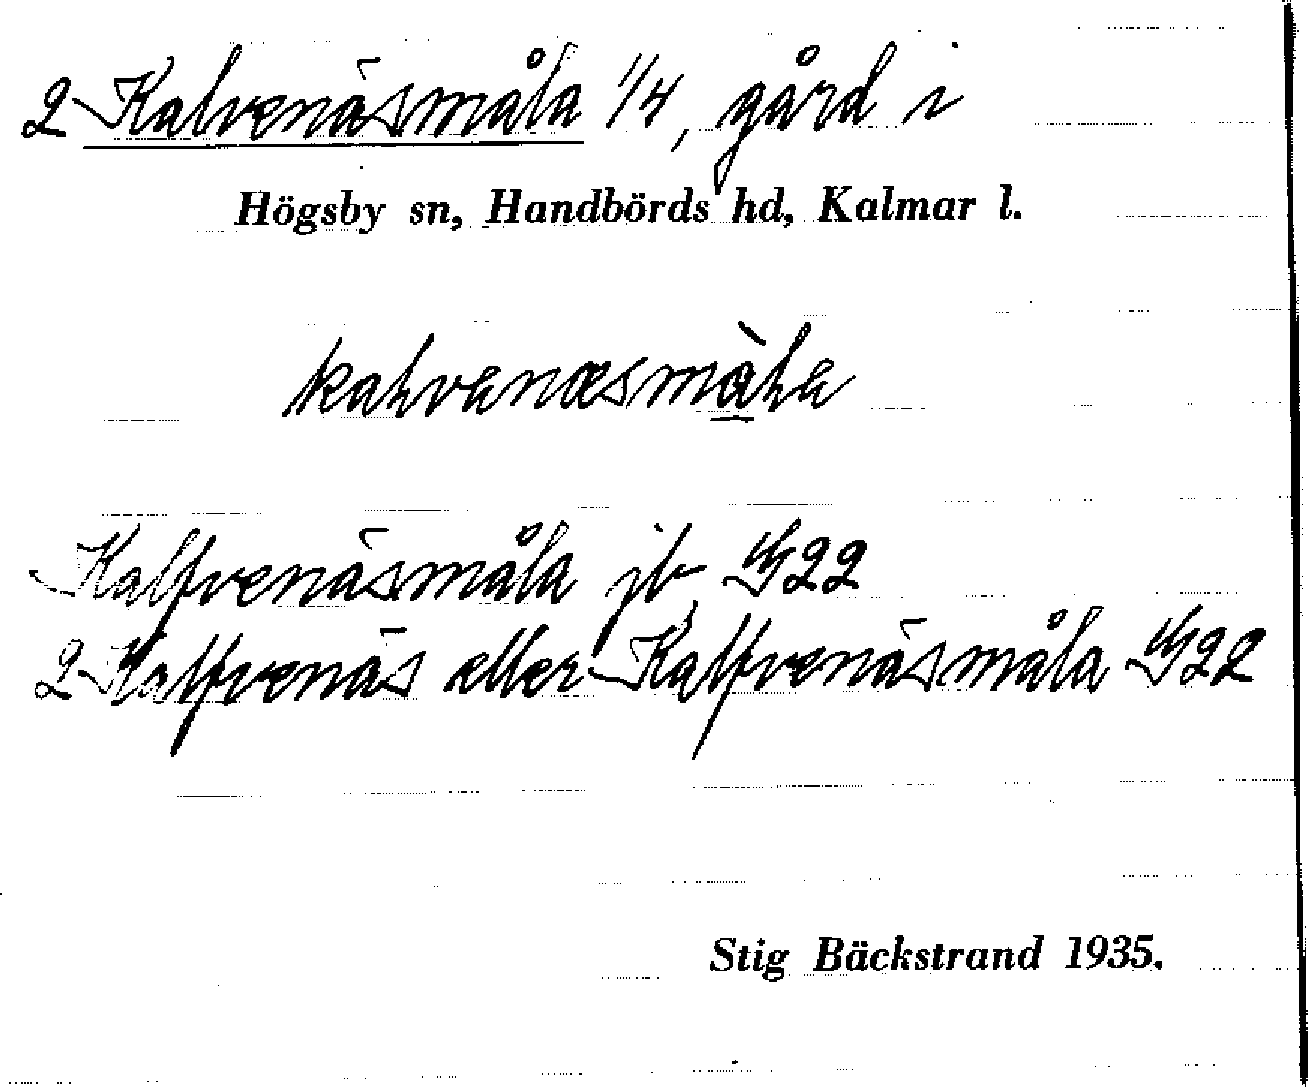 2 Kalvenäsmåla 1/4, gård i
Högsby sn, Handbörds hd, Kalmar l.
kalvenæsmàla
Kalfvenäsmåla jb
2 Kalfvenäs eller Kalfvenäsmåla
Stig Bäckstrand 1935.